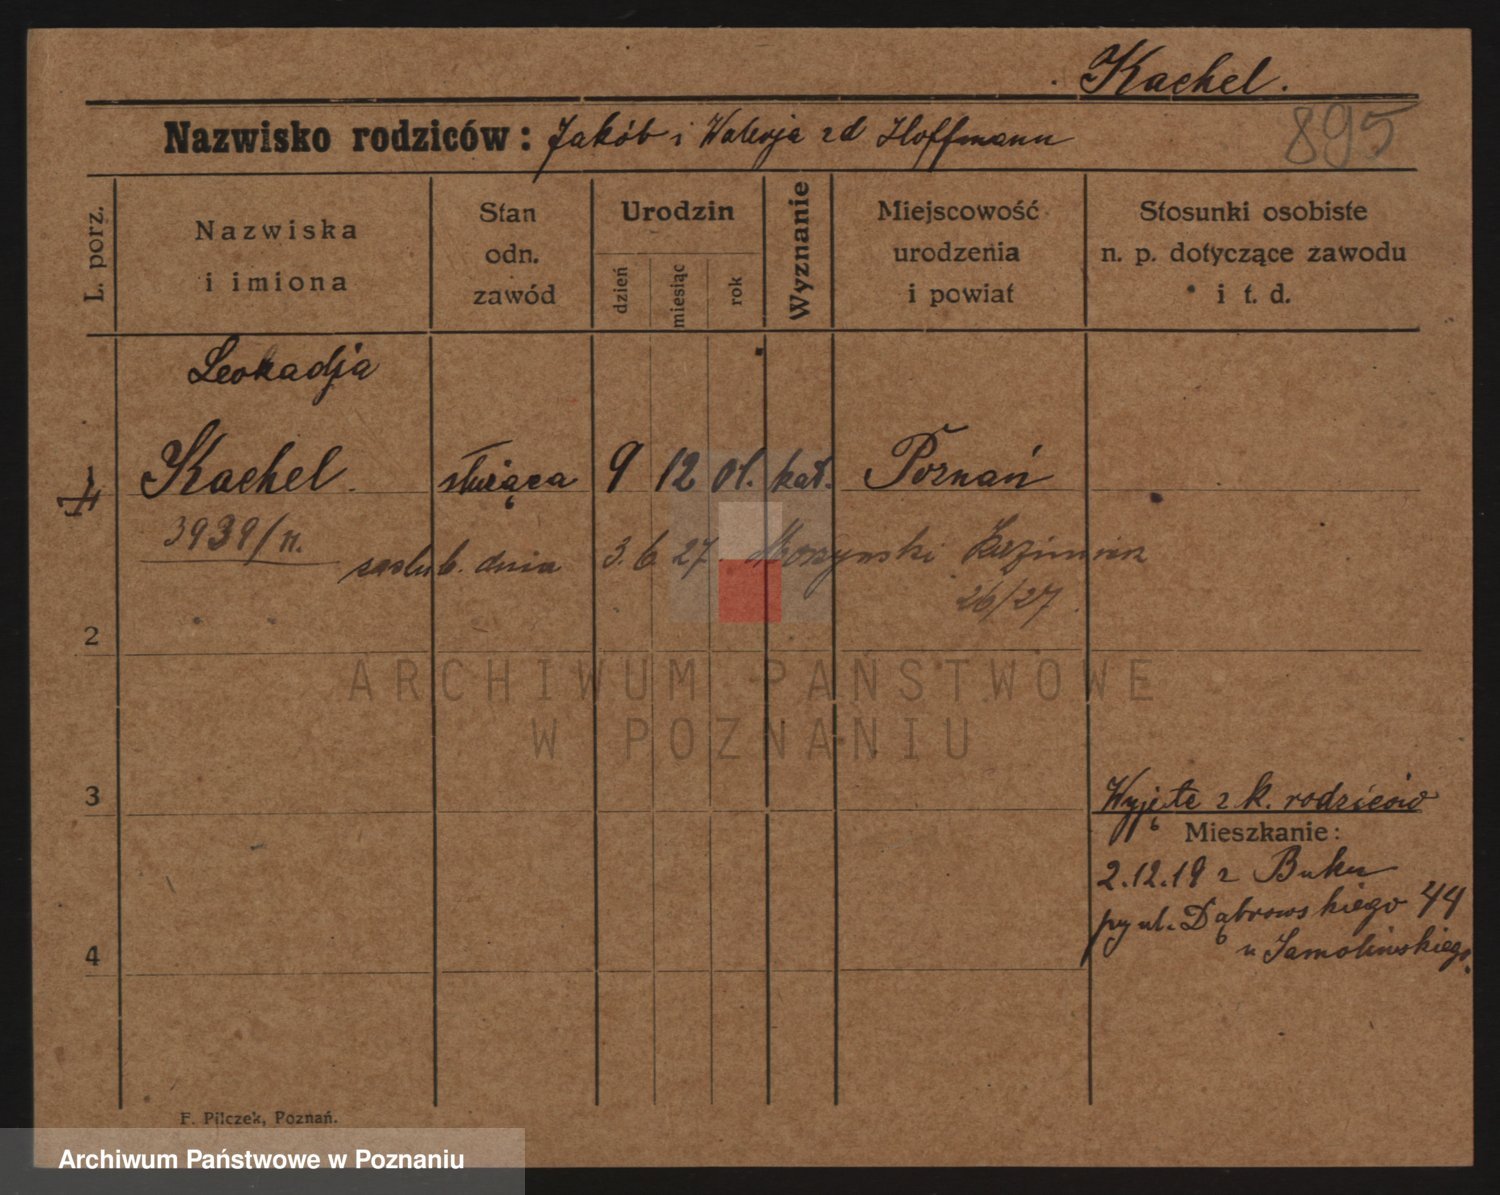 Kachel.
895
Nazwisko rodziców: Jakób i Walerja zd Hoffmann
L. porz.
Nazwiska
i imiona
Stan
odn.
zawód
Urodzin
dzień
miesiąc
rok
Wyznanie
Miejscowość
urodzenia
i powiat
Stosunki osobiste
n. p. dotyczące zawodu
i t. d.
Leokadja
1 Kachel służąca 9 12 01. kat. Poznań
3939/n.
zaślub. dnia 3.6.27 Kazimierz
26/27
2
ARCHIWUM PAŃSTWOWE
W POZNANIU
3
Wyjęte z k. rodziców
Mieszkanie:
2.12.19 z Buku
py ul. Dąbrowskiego 44
4
u Jamolińskiego.
F. Pilczek, Poznań.
Archiwum Państwowe w Poznaniu